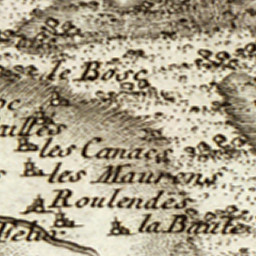 le Bosc
les Canacs
les Maurens
Roulendes
la Baute